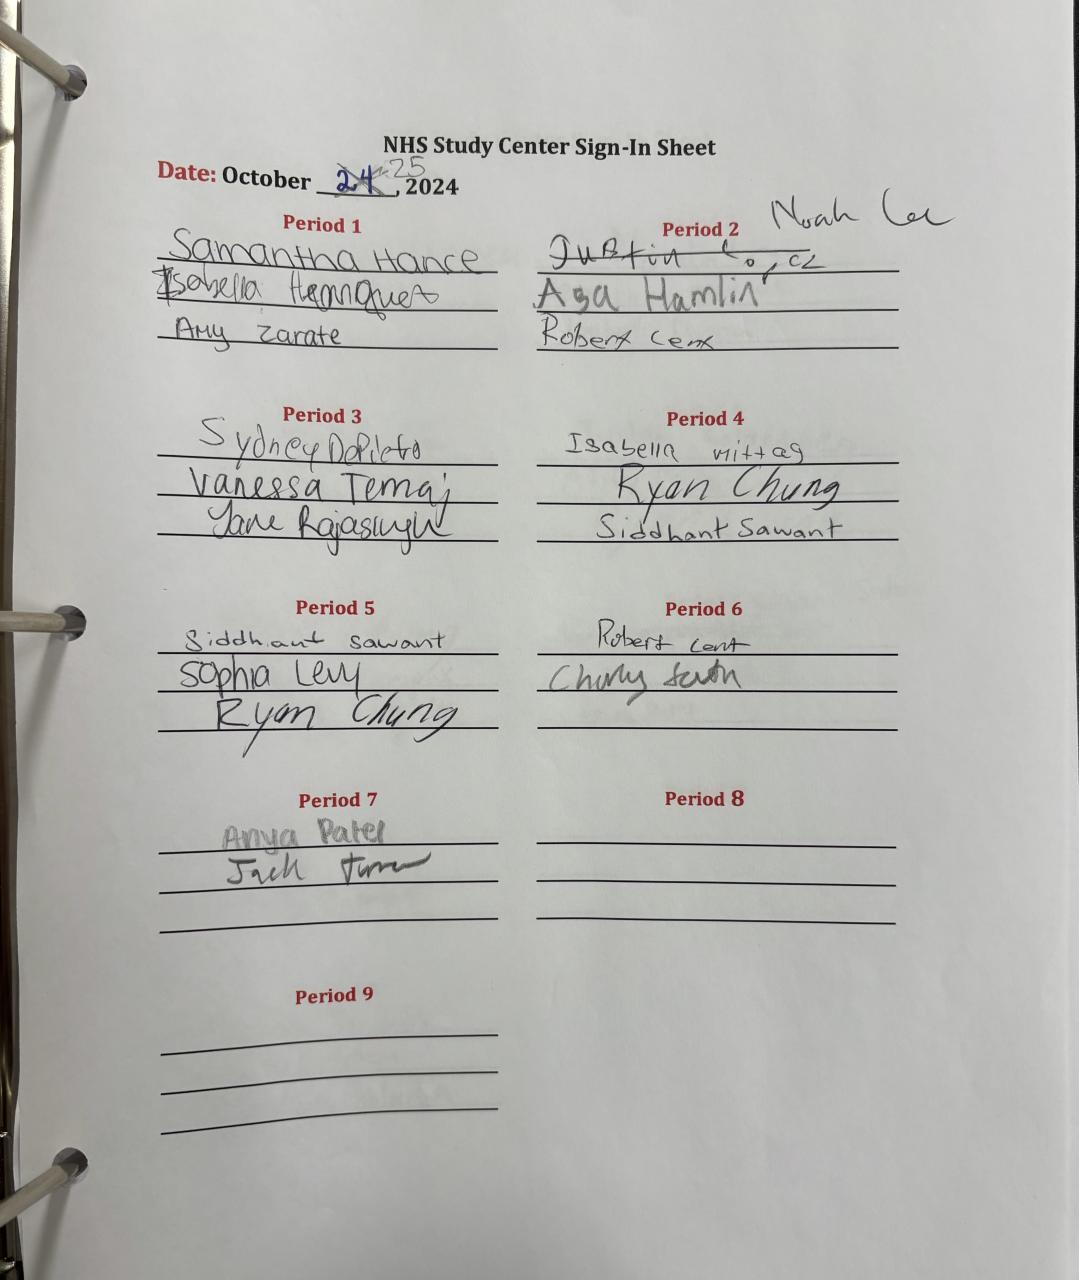 NHS Study Center Sign-In Sheet
Date: October 24 25, 2024
Period 1
Samantha Hance
Isabella Henriquez
Amy Zarate
Period 2
Noah Lee
Justin
Asa Hamlin
Robert Cent
Period 3
Sydney DePileto
Vanessa Temaj
Rajasingh
Period 4
Isabella Mittag
Ryan Chung
Siddhant Sawant
Period 5
Siddhant Sawant
Sophia Levy
Ryan Chung
Period 6
Robert Cent
Period 7
Anya Patel
Jack
Period 8
Period 9